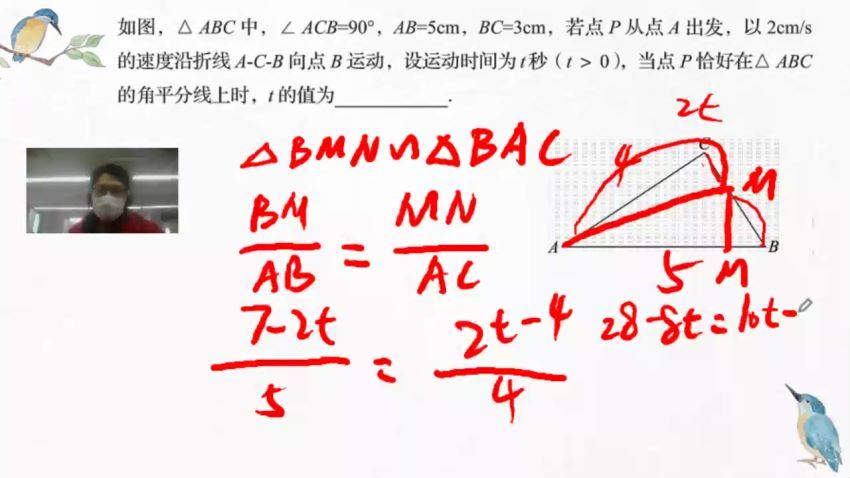 如图，△ ABC 中，∠ ACB=90°，AB=5cm，BC=3cm，若点 P 从点 A 出发，以 2cm/s
的速度沿折线 A-C-B 向点 B 运动，设运动时间为 t 秒（ t > 0 ），当点 P 恰好在△ ABC
的角平分线上时，t 的值为__________.
2t
△BMN∽△BAC
C
4
M
BM/AB = MN/AC
A
B
5
M
(7-2t)/5 = (2t-4)/4
28-8t=10t-